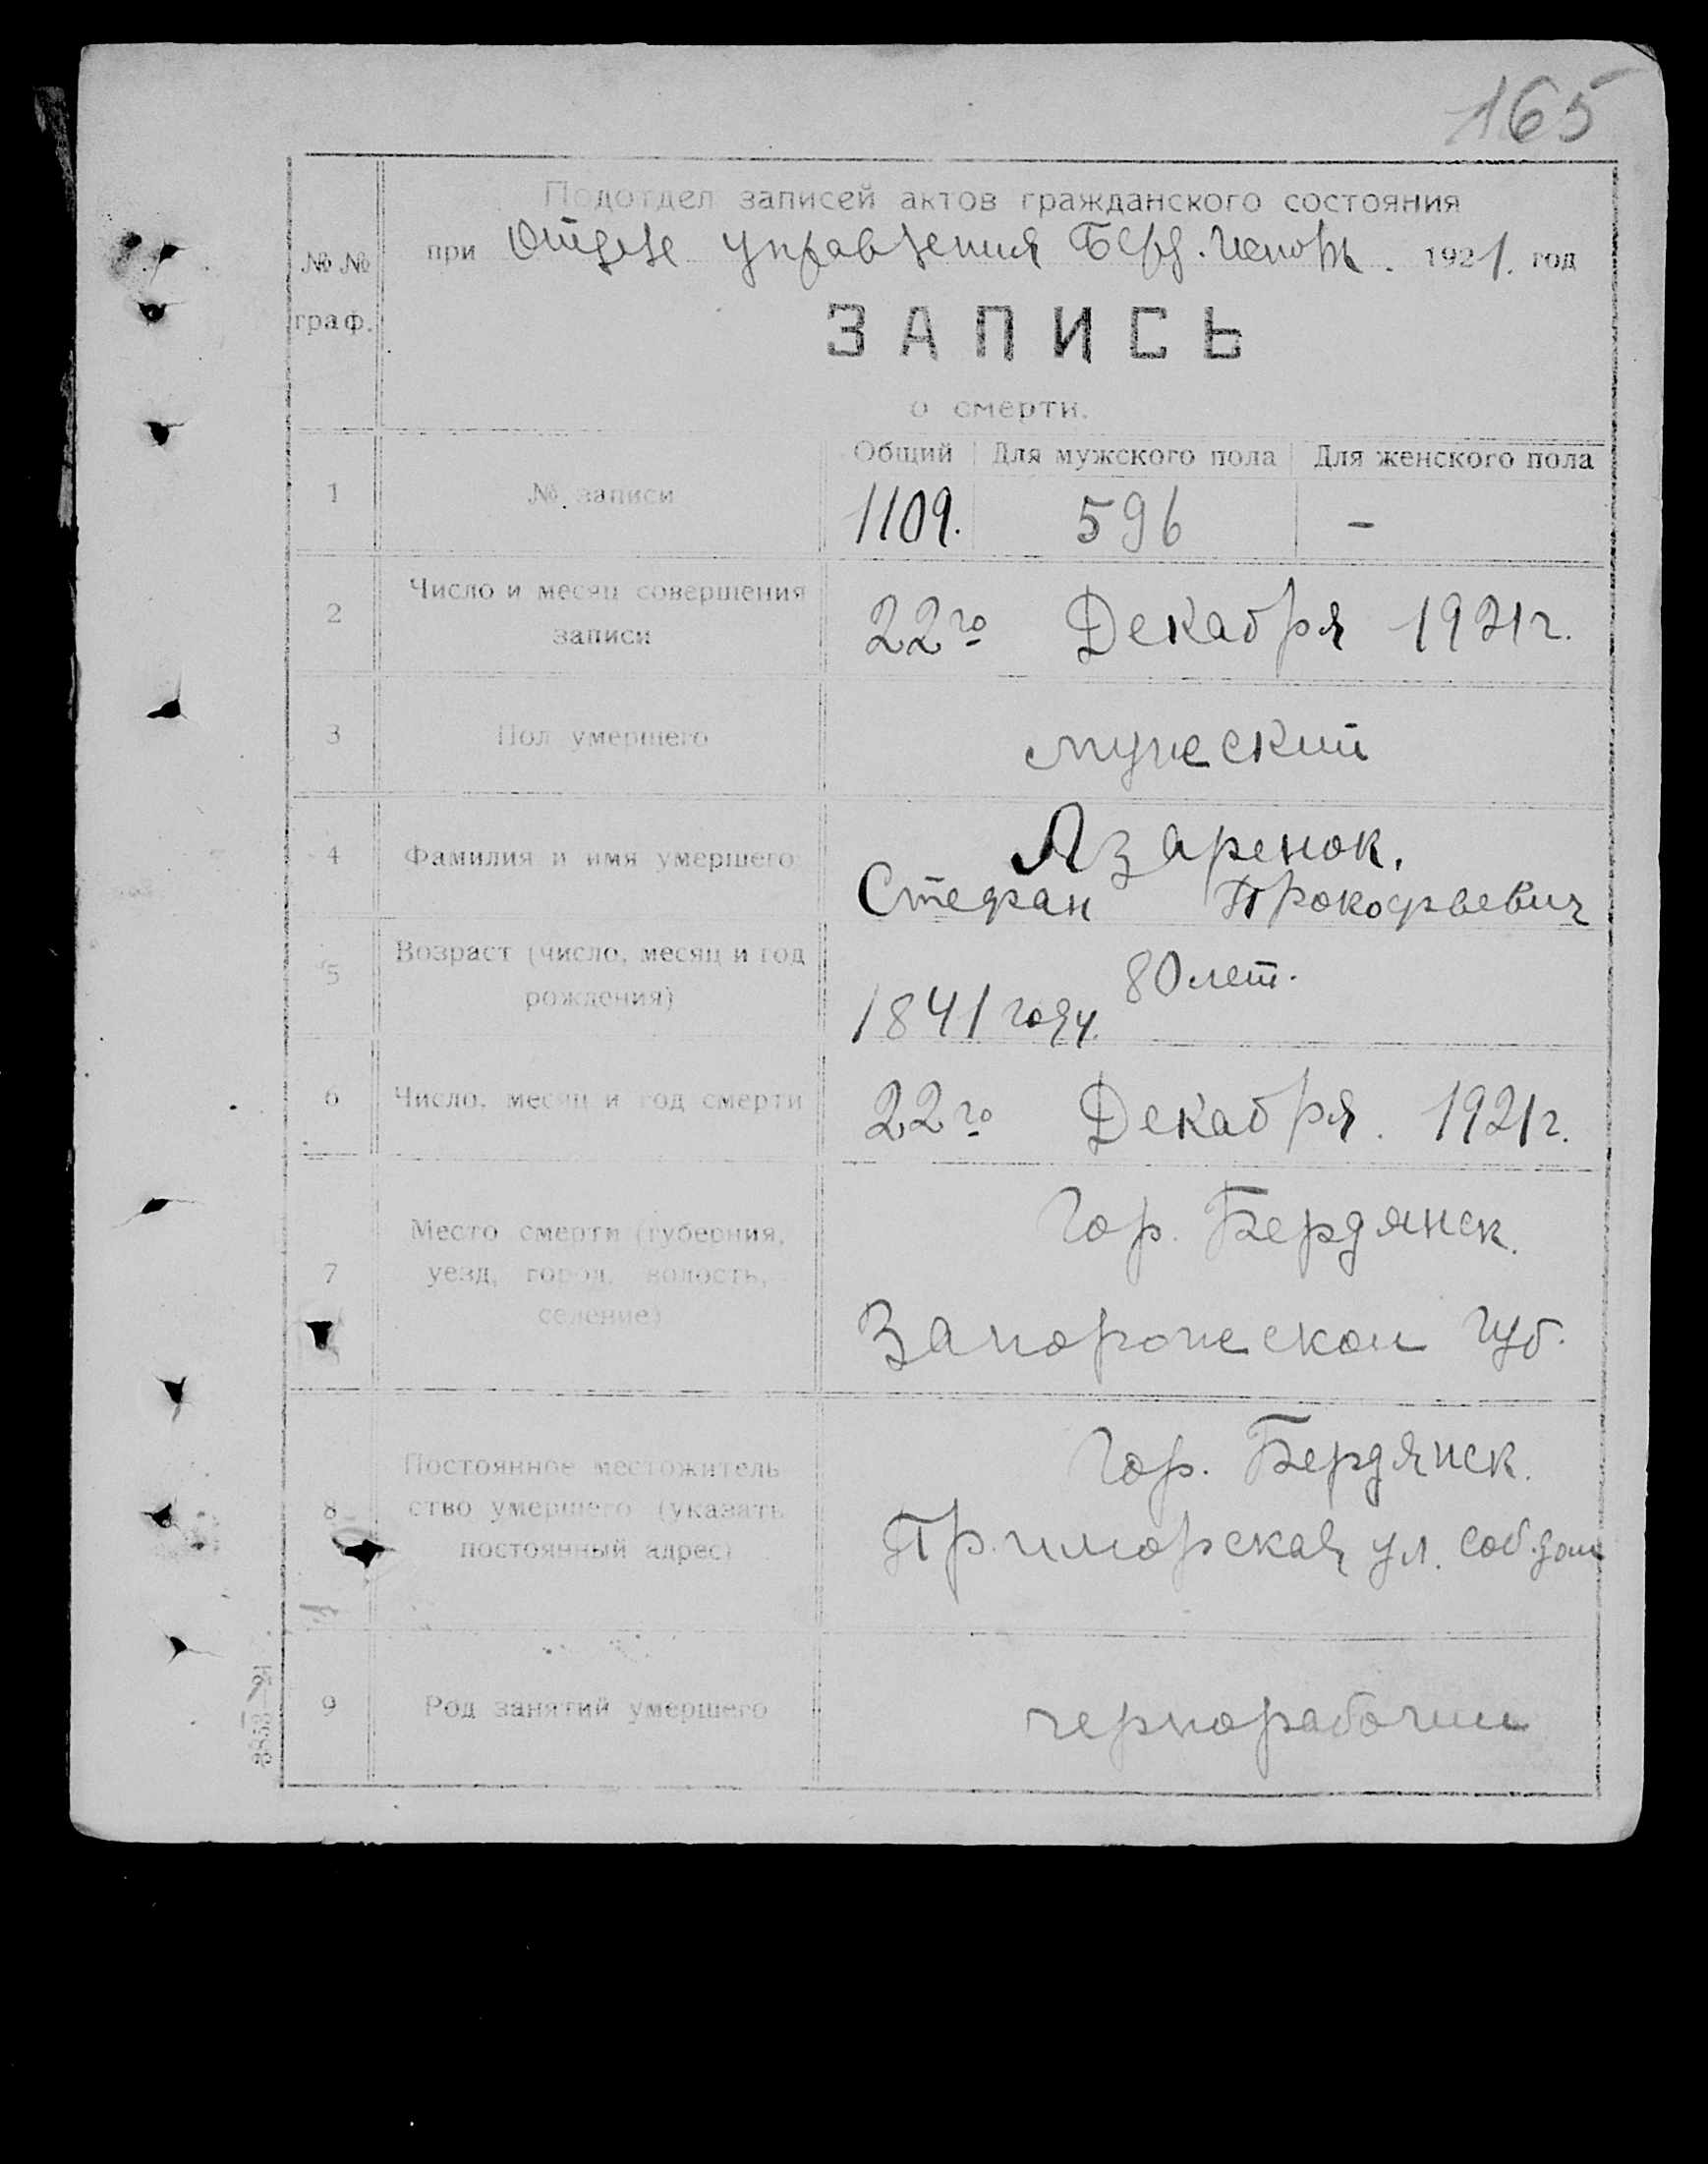 165
Подотдел записей актов гражданского состояния
№ № граф.
при Отделе управления Берд. 1921. год
ЗАПИСЬ
о смерти.
Общий Для мужского пола Для женского пола
1 № записи 1109. 596 -
2 Число и месяц совершения
записи 22го Декабря 1921г.
3 Пол умершего мужский
4 Фамилия и имя умершего Азаренок.
Стефан Прокофьевич
5 Возраст (число, месяц и год
рождения) 80 лет.
1841 году.
6 Число, месяц и год смерти 22го Декабря. 1921г.
7 Место смерти (губерния,
уезд, город, волость,
селение)
Гор. Бердянск.
Запорожской Губ.
8 Постоянное местожитель
ство умершего (указать
постоянный адрес)
Гор. Бердянск.
Приморская ул. соб. дом
9 Род занятий умершего чернорабочий